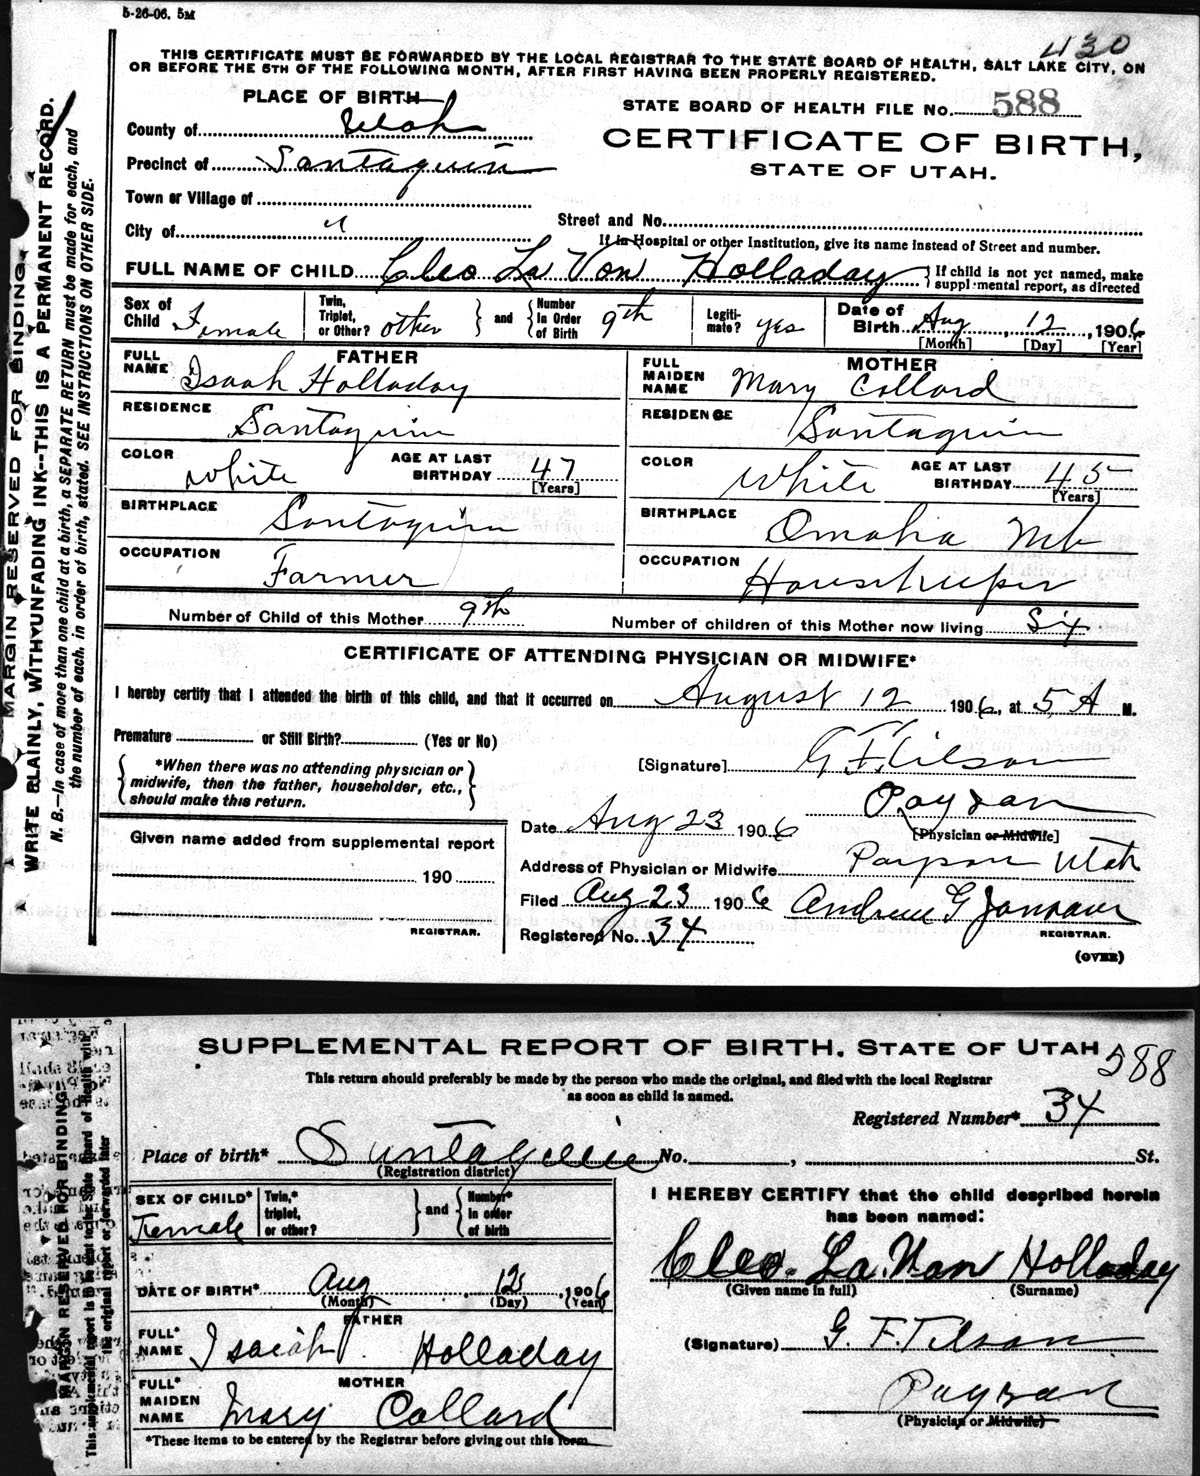 5-26-06. 5M
430
THIS CERTIFICATE MUST BE FORWARDED BY THE LOCAL REGISTRAR TO THE STATE BOARD OF HEALTH, SALT LAKE CITY, ON
OR BEFORE THE 5TH OF THE FOLLOWING MONTH, AFTER FIRST HAVING BEEN PROPERLY REGISTERED.
MARGIN RESERVED FOR BINDING.
WRITE PLAINLY, WITH UNFADING INK--THIS IS A PERMANENT RECORD.
N. B.—In case of more than one child at a birth, a SEPARATE RETURN must be made for each, and
the number of each, in order of birth, stated. SEE INSTRUCTIONS ON OTHER SIDE.
PLACE OF BIRTH
STATE BOARD OF HEALTH FILE No. 588
County of Utah
CERTIFICATE OF BIRTH,
Precinct of Santaquin
STATE OF UTAH.
Town or Village of
City of "
Street and No.
If in Hospital or other Institution, give its name instead of Street and number.
FULL NAME OF CHILD Cleo La Von Holladay
If child is not yet named, make
supplemental report, as directed
Sex of Child Female Twin, Triplet, or Other? other and Number in Order of Birth 9th Legiti-mate? yes Date of Birth Aug, 12, 1906
[Month] [Day] [Year]
FATHER MOTHER
FULL NAME Isaah Holladay FULL MAIDEN NAME Mary Collard
RESIDENCE Santaquin RESIDENCE Santaquin
COLOR White AGE AT LAST BIRTHDAY 47 [Years] COLOR White AGE AT LAST BIRTHDAY 45 [Years]
BIRTHPLACE Santaquin BIRTHPLACE Omaha Neb
OCCUPATION Farmer OCCUPATION Housekeeper
Number of Child of this Mother 9th Number of children of this Mother now living Six
CERTIFICATE OF ATTENDING PHYSICIAN OR MIDWIFE*
I hereby certify that I attended the birth of this child, and that it occurred on August 12 1906, at 5 A M.
Premature or Still Birth? (Yes or No)
*When there was no attending physician or
midwife, then the father, householder, etc.,
should make this return.
[Signature] G. F. Tilson
Payson
[Physician or Midwife]
Date Aug 23 1906
Address of Physician or Midwife Payson Utah
Given name added from supplemental report
190
REGISTRAR.
Filed Aug 23 1906 Andrew G
REGISTRAR.
Registered No. 34
(OVER)
SUPPLEMENTAL REPORT OF BIRTH. STATE OF UTAH 588
This return should preferably be made by the person who made the original, and filed with the local Registrar
as soon as child is named.
Registered Number* 34
Place of birth* Santaquin No. , St.
(Registration district)
MARGIN RESERVED FOR BINDING
SEX OF CHILD* Female Twin,* triplet, or other? and Number* in order of birth
I HEREBY CERTIFY that the child described herein
has been named:
Cleo. La Von Holladay
(Given name in full) (Surname)
DATE OF BIRTH* Aug , 12 , 1906
(Month) (Day) (Year)
FATHER
FULL* NAME Isaiah Holladay
(Signature) G. F. Tilson
MOTHER
FULL* MAIDEN NAME Mary Collard
Payson
(Physician or Midwife)
*These items to be entered by the Registrar before giving out this form